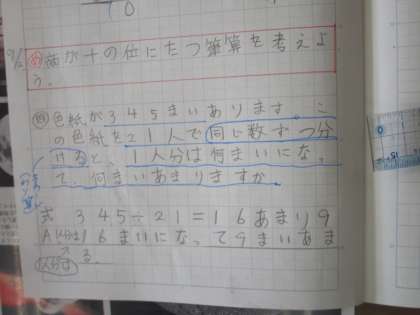 0
9/12 め 商が十の位にたつ筆算を考えよ
う。
問 色紙が345まいあります。こ
の色紙を21人で同じ数ずつ分
けると、1人分は何まいにな、
て、何まいあまりますか。
式 345÷21=16あまり9
A 1人分は16まいにな、て9まいあま
る。
1人分は